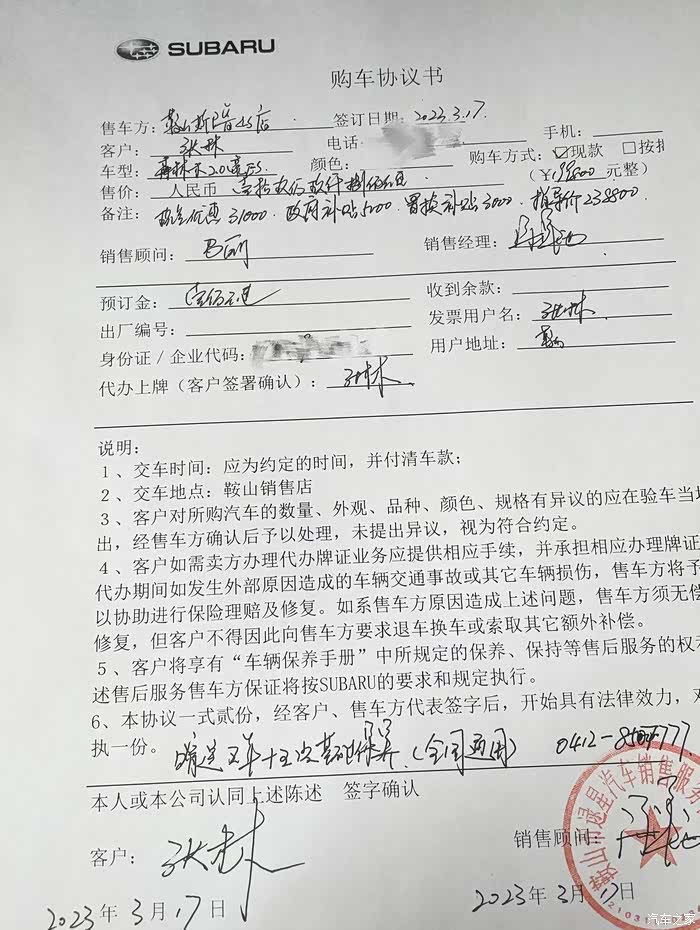 SUBARU
购车协议书
售车方：鞍山斯巴鲁4S店 签订日期：2023.3.17.
客户：张林 电话 手机：
车型：森林人2.0 颜色： 购车方式：☑现款 □按
售价：人民币 (￥199800 元整)
备注：现金优惠31000. 政府补贴5000. 置换补贴3000. 指导价238800
销售顾问： 销售经理：
预订金：壹佰元 收到余款：
出厂编号： 发票用户名：张林.
身份证／企业代码： 用户地址：
代办上牌（客户签署确认）：张林
说明：
1、交车时间：应为约定的时间，并付清车款；
2、交车地点：鞍山销售店
3、客户对所购汽车的数量、外观、品种、颜色、规格有异议的应在验车当
出，经售车方确认后予以处理，未提出异议，视为符合约定。
4、客户如需卖方办理代办牌证业务应提供相应手续，并承担相应办理牌证
代办期间如发生外部原因造成的车辆交通事故或其它车辆损伤，售车方将予
以协助进行保险理赔及修复。如系售车方原因造成上述问题，售车方须无偿
修复，但客户不得因此向售车方要求退车换车或索取其它额外补偿。
5、客户将享有“车辆保养手册”中所规定的保养、保持等售后服务的权
述售后服务售车方保证将按SUBARU的要求和规定执行。
6、本协议一式贰份，经客户、售车方代表签字后，开始具有法律效力，
执一份。 赠送五年十五次基础保养.（全国通用） 0412-
本人或本公司认同上述陈述 签字确认
客户：张林 销售顾问：
2023年3月17日 2023年3月17日
汽车销售服务
汽车之家